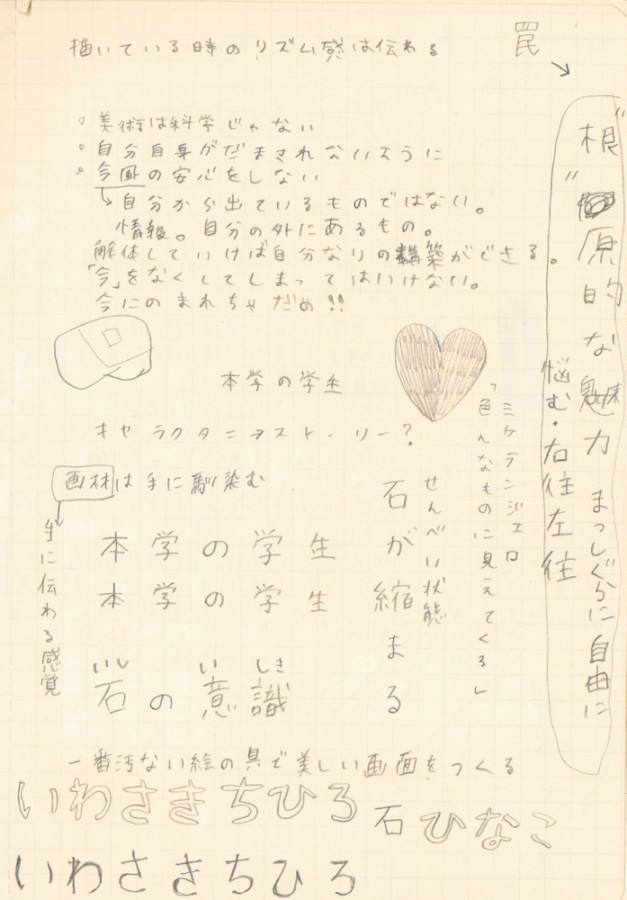 描いている時のリズム感は伝わる
罠
美術は科学じゃない
自分自身がだまされないように
今風の安心をしない
自分から出ているものではない。
情報。自分の外にあるもの。
解体していけば自分なりの構築ができる。
「今」をなくしてしまってはいけない。
今にのまれちゃだめ!!
"根"原的な魅力 まっしぐらに自由に
悩む・右往左往
本学の学生
キャラクターヲストーリー?
ミケランジェロ
「色んなものに見えてくる」
画材は手に馴染む
手に伝わる感覚
せんべい状態
石が縮まる
本学の学生
本学の学生
いし い しき
石の意識
一番汚ない絵の具で美しい画面をつくる
いわさきちひろ
石ひなこ
いわさきちひろ